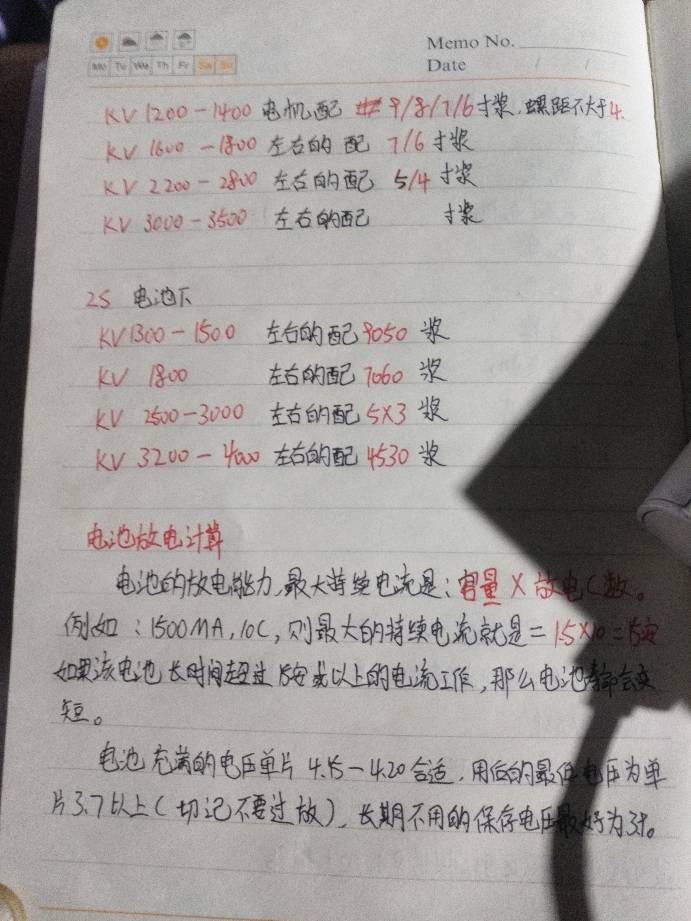 Memo No.
Mo Tu We Th Fr Sa Su
Date / /
KV 1200-1400 电机配 9/8/7/6寸浆.螺距不大于4.
KV 1600-1800 左右的 配 7/6 寸浆
KV 2200-2800 左右的配 5/4 寸浆
KV 3000-3500 左右的配 寸浆
2S 电池下
KV1300-1500 左右的配 9050 浆
KV 1800 左右的配 7060 浆
KV 2500-3000 左右的配 5X3 浆
KV 3200-4000 左右的配 4530 浆
电池放电计算
电池的放电能力,最大持续电流是:容量 X 放电C数。
例如:1500MA,10C,则最大的持续电流就是=1.5X10=15安
如果该电池长时间超过15安或以上的电流工作,那么电池寿命会变
短。
电池充满的电压单片 4.15-4.20合适.用后的最低电压为单
片3.7以上(切记不要过放).长期不用的保存电压最好为3.9。